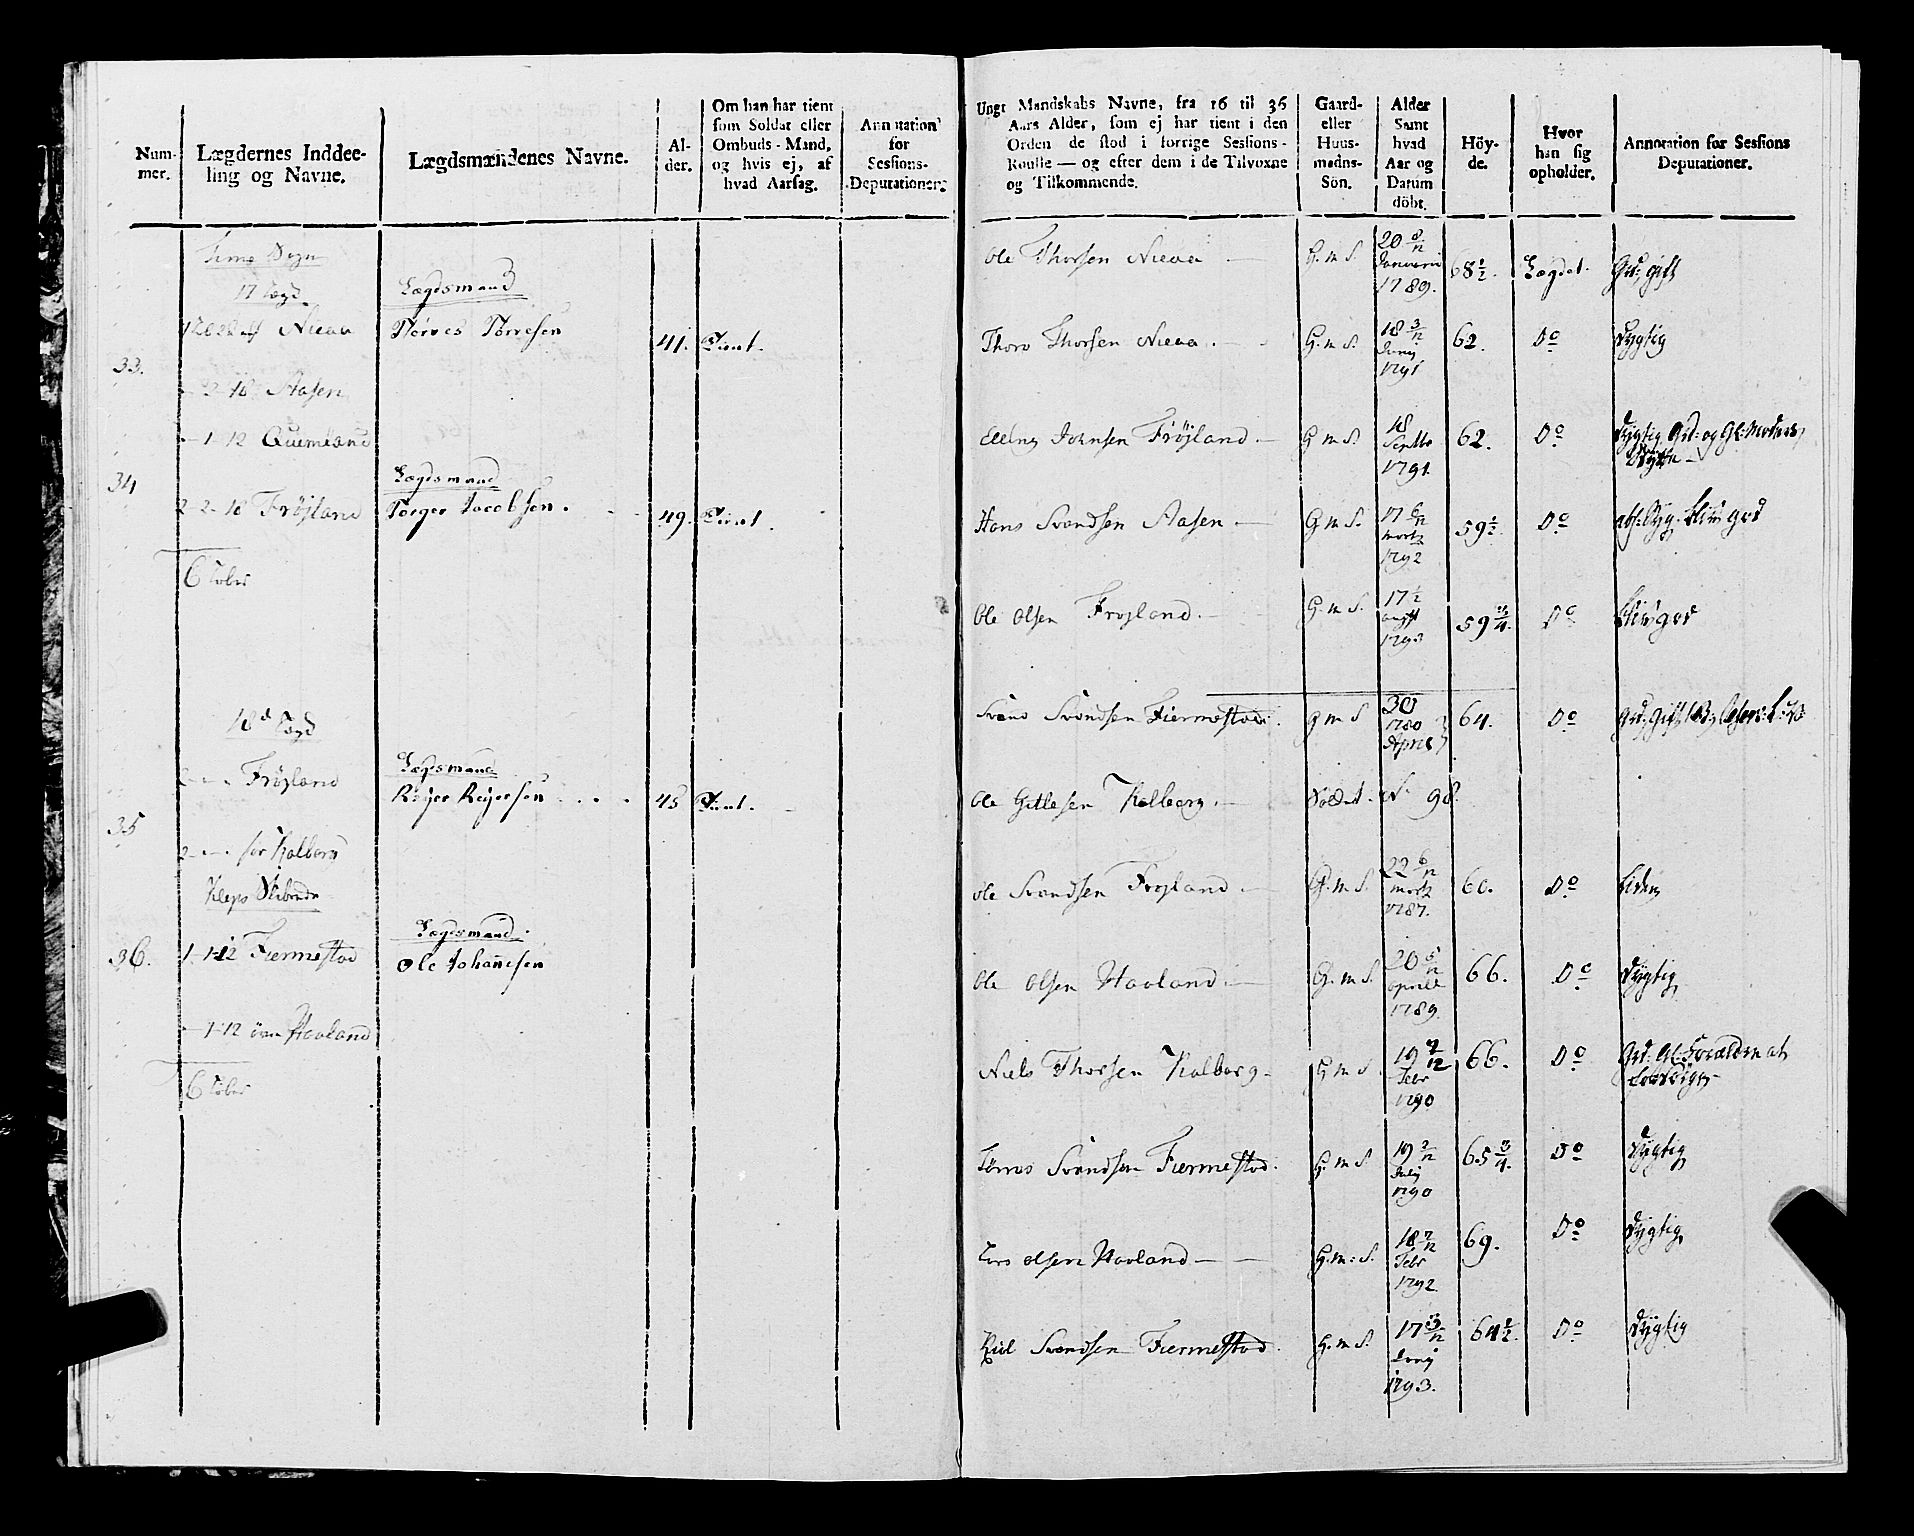 Num-
mer.
Lægdernes Inddee-
ling og Navne.
Lægdsmændenes Navne.
Al-
der.
Om han har tient
som Soldat eller
Ombuds-Mand,
og hvis ej, af
hvad Aarsag.
Annotation
for
Sessions-
Deputationer.
Time Sogn
17 Lægd
Lægdsmand
Nieaa
Tørres Tørresen
41.
Tient.
33.
2-18 Aasen
-1-12 Quernland
34
Lægdsmand
2-2-18 Frøjland
Torger Jacobsen.
49.
Tient.
6 Lober
18d Lægd
Lægdsmand
2-- Frøjland
Reyer Reyersen
45
Tient.
35
2-- Kalberg
Kleps Skibrede
Lægdsmand
36.
1-1-12 Fiermestad
Ole Johannesen
-1-12 Haaland
6 Lober
Ungt Mandskabs Navne, fra 16 til 36
Aars Alder, som ej har tient i den
Orden de stod i forrige Sessions-
Roulle — og efter dem i de Tilvoxne
og Tilkommende.
Gaard-
eller
Huus-
mands-
Sön.
Alder
Samt
hvad
Aar og
Datum
döbt.
Höy-
de.
Hvor
han sig
opholder.
Annotation for Sessions
Deputationer.
Ole Thorsen Nieaa
G. m S.
20 8/12
Januarii
1789.
68 1/2.
Lægdet.
Grd: gift
Thore Thorsen Nieaa.
G. m S.
18 3/12
Junij
1791
62.
Do
Dygtig
Elling Johnsen Frøjland
G m S.
18
Septbr
1791
62.
Do
Dygtig Grd: og Gl: Moders
Støtte
Hans Svendsen Aasen
G m S.
17 6/12
Martz
1792
59 1/2.
Do
Ole Olsen Frøjland.
G. m S.
17 1/2
augst
1793
59 3/4.
Do
Svend Svendsen Fiermestad.
G m S
30
1780
April
64.
Do
Ole Gitlesen Kalberg.
Soldat
98.
Ole Svendsen Frøjland
G. m S.
22 6/12
Martz
1787.
60.
Do
Liden
Ole Olsen Haaland
G. m S.
20 5/12
Aprill
1789.
66.
Do
Dygtig
Niels Thorsen Kalberg
G m S.
19 7/12
Febr
1790
66.
Do
Grd: Gl Forældre at
forsørge
Tørres Svendsen Fiermestad.
G. m S
19 2/12
Julij
1790
65 3/4.
Do
Dygtig
Lars Olsen Haaland
G. m: S.
18 7/12
Febr
1792.
69.
Do
Dygtig
Svendsen Fiermestad.
G. m S.
17 3/12
Junij
1793.
64 1/2.
Do
Dygtig